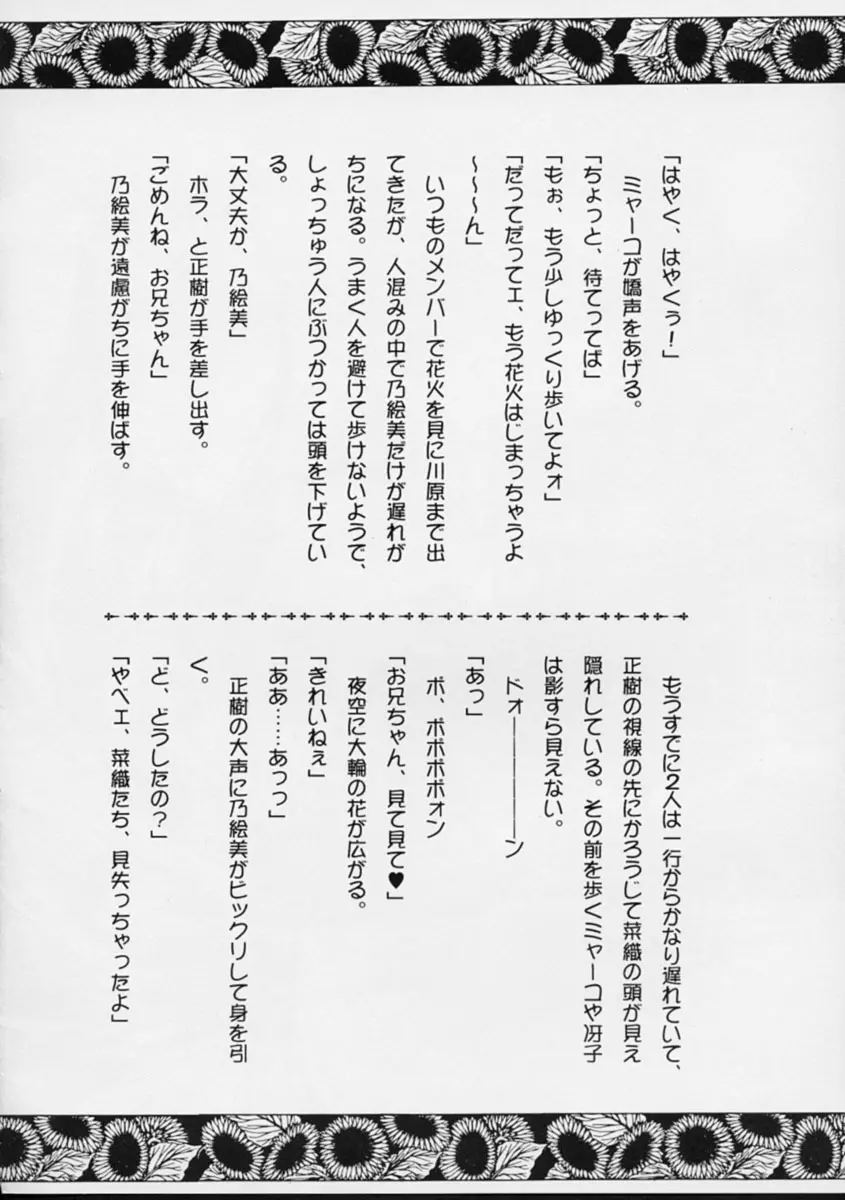 「はやく、はやくぅ！」
ミャーコが嬌声をあげる。
「ちょっと、待てってば」
「もぉ、もう少しゆっくり歩いてよォ」
「だってだってェ、もう花火はじまっちゃうよ
～～～ん」
いつものメンバーで花火を見に川原まで出
てきたが、人混みの中で乃絵美だけが遅れが
ちになる。うまく人を避けて歩けないようで、
しょっちゅう人にぶつかっては頭を下げてい
る。
「大丈夫か、乃絵美」
ホラ、と正樹が手を差し出す。
「ごめんね、お兄ちゃん」
乃絵美が遠慮がちに手を伸ばす。
もうすでに2人は一行からかなり遅れていて、
正樹の視線の先にかろうじて菜織の頭が見え
隠れしている。その前を歩くミャーコや冴子
は影すら見えない。
ドォ―――――ン
「あっ」
ボ、ボボボボォン
「お兄ちゃん、見て見て♥」
夜空に大輪の花が広がる。
「きれいねぇ」
「ああ……あっっ」
正樹の大声に乃絵美がビックリして身を引
く。
「ど、どうしたの？」
「やべェ、菜織たち、見失っちゃったよ」